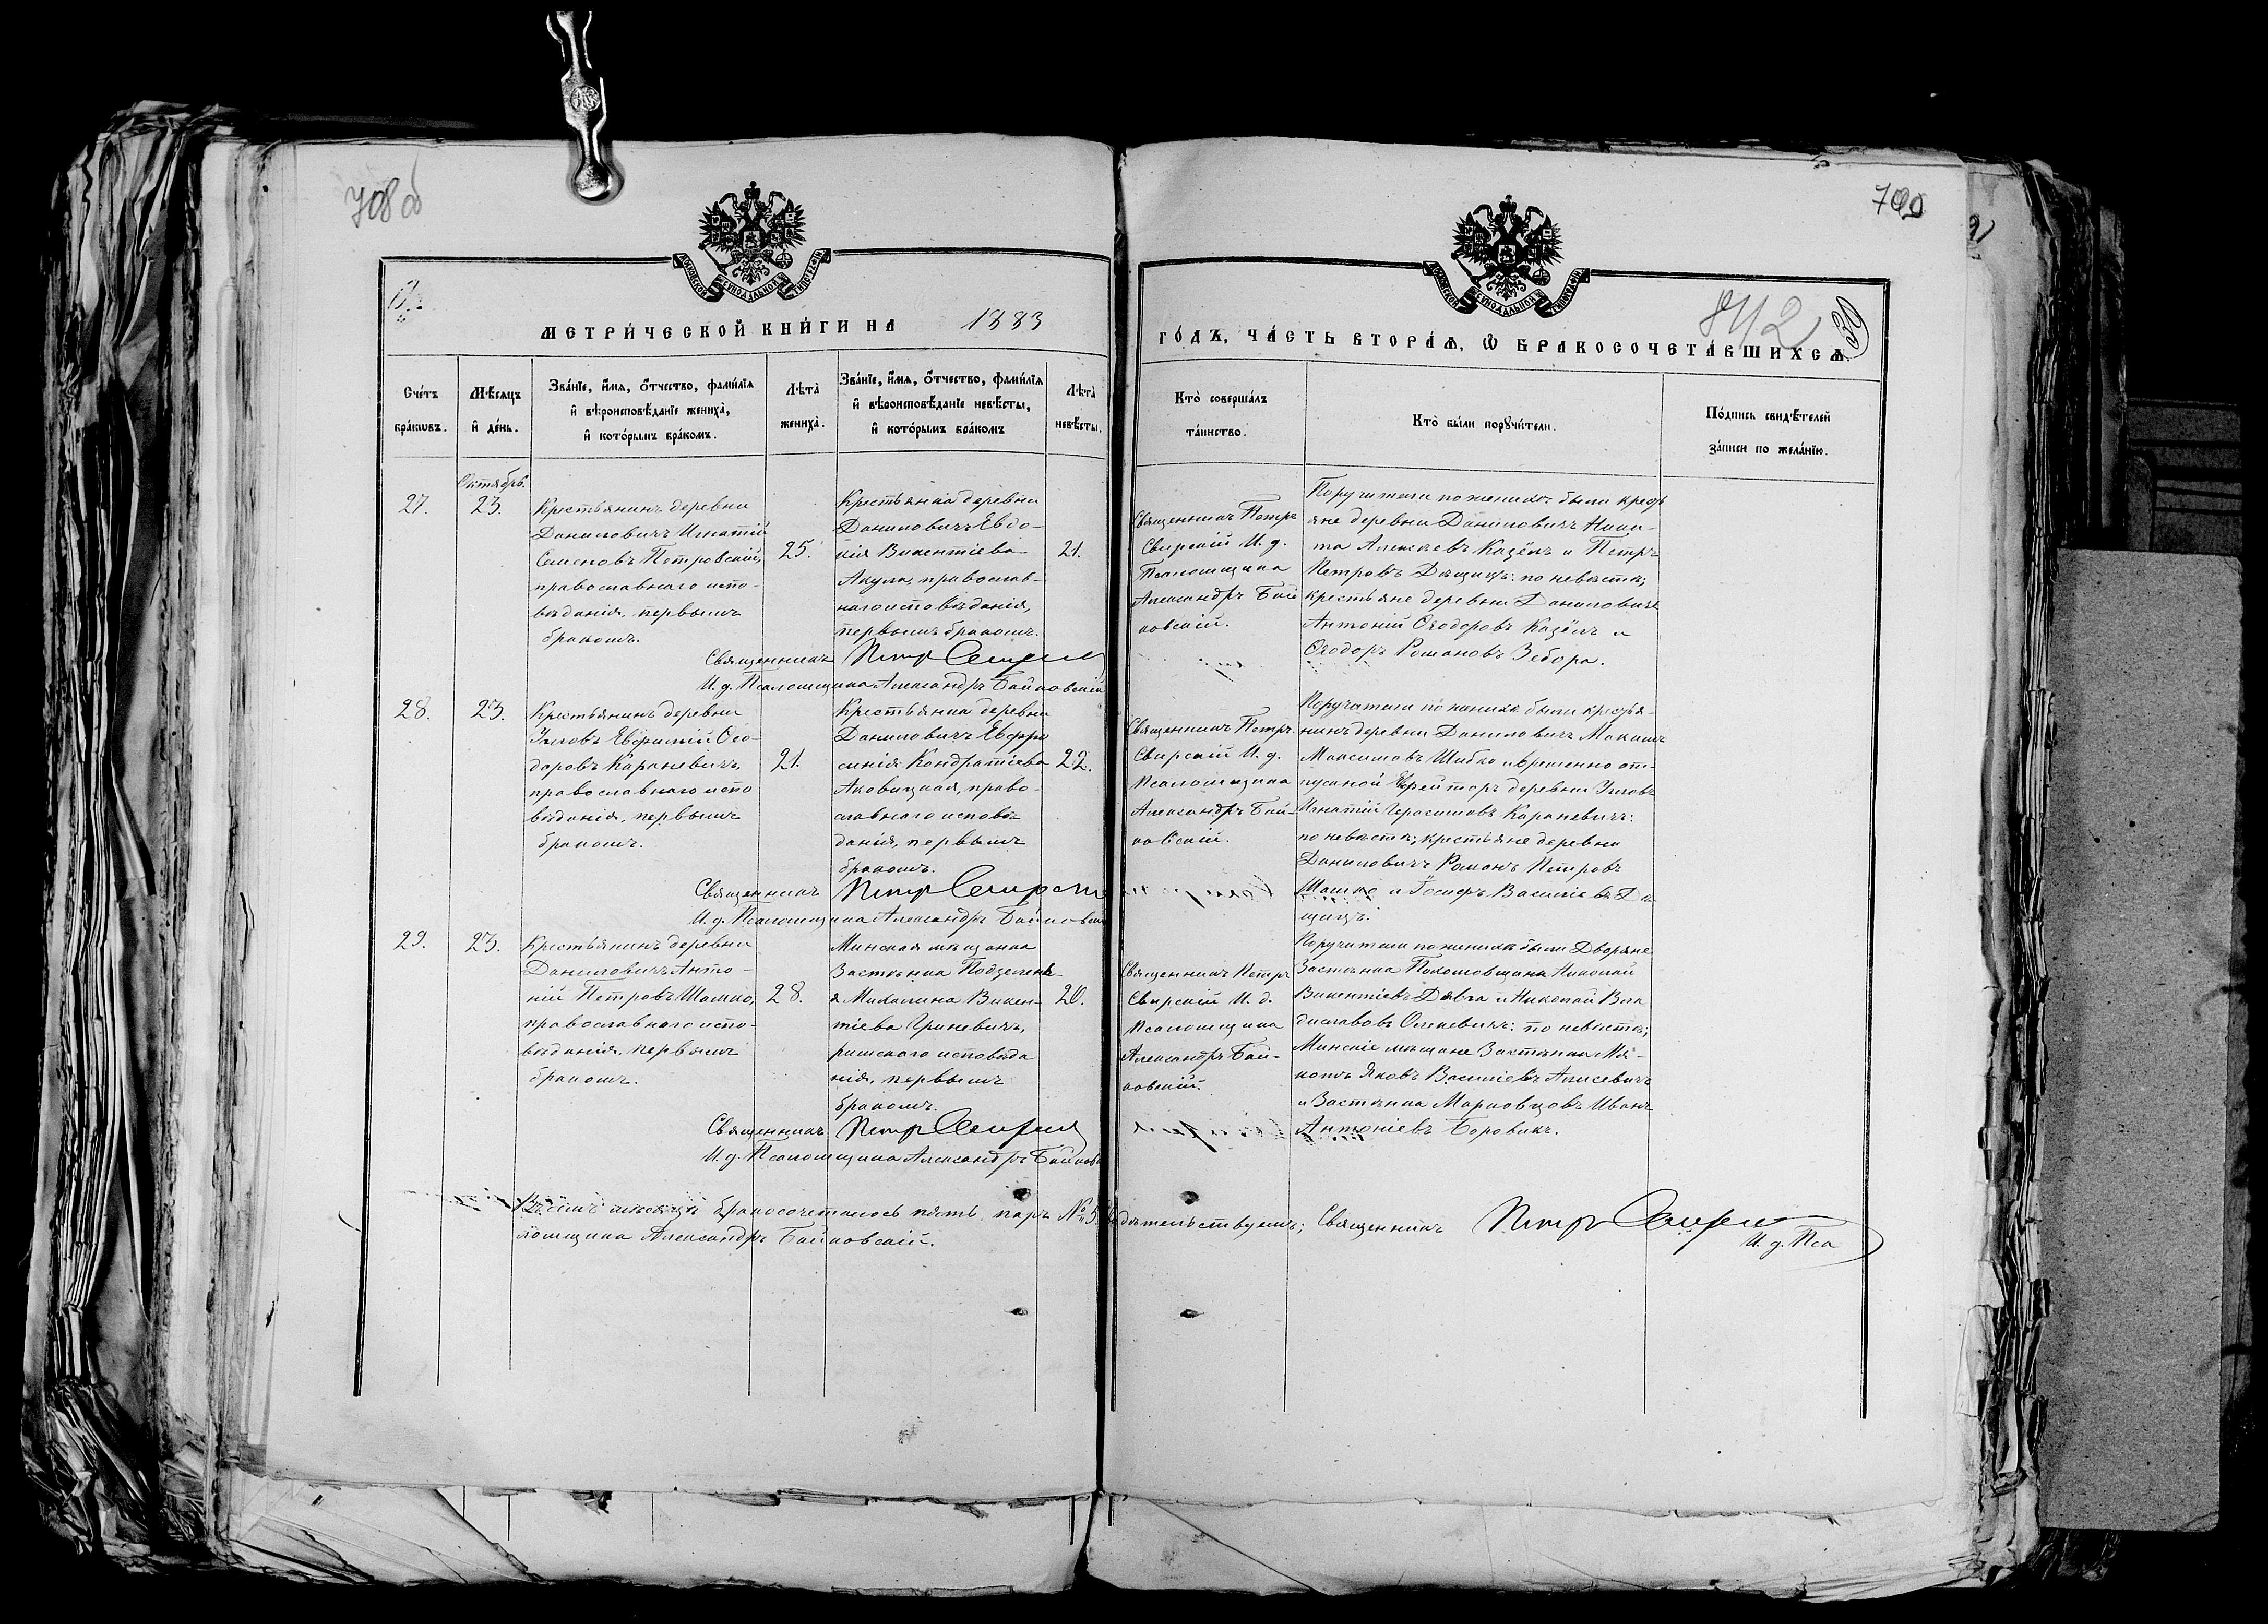 708 об
709
842
30
МОСКОВСКОЙ СѴНОДАЛЬНОЙ ТИПОГРАФІИ
МОСКОВСКОЙ СѴНОДАЛЬНОЙ ТИПОГРАФІИ
МЕТРИ́ЧЕСКОЙ КНИ́ГИ НА 1883
ГО́ДЪ, ЧА́СТЬ ВТОРА́Ѧ, Ѽ БРАКОСОЧЕТА́ВШИХСѦ.
Сче́тъ
бра́кѡвъ.
Мѣ́сѧцъ
и҆ де́нь.
Зва́нїе, и҆́мѧ, ѻ҆́тчество, фами́лїѧ
и҆ вѣроисповѣ́данїе жениха̀,
и҆ кото́рымъ бра́комъ.
Лѣта̀
жениха̀.
Зва́нїе, и҆́мѧ, ѻ҆́тчество, фами́лїѧ
и҆ вѣроисповѣ́данїе невѣ́сты,
и҆ кото́рымъ бра́комъ
Лѣта̀
невѣ́сты.
Кто̀ соверша́лъ
та́инство.
Кто̀ бы́ли порꙋчи́тели.
По́дпись свидѣ́телей
за́писи по жела́нїю.
Октябрь.
27.
23.
Крестьянинъ деревни
Даниловичъ Игнатій
Семеновъ Петровскій,
православнаго испо-
вѣданія, первымъ
бракомъ.
25.
Крестьянка деревни
Даниловичъ Евдо-
кія Викентіева
Акула, православ-
наго исповѣданія,
первымъ бракомъ.
21.
Священникъ Петръ
Свирскій И. д.
Псаломщика
Александръ Бай
ковскій.
Поручители по женихѣ были кресть
яне деревни Даниловичъ Ники-
та Алексѣевъ Казёлъ и Петръ
Петровъ Дащицъ: по невѣстѣ;
крестьяне деревни Даниловичъ
Антоній Ѳеодоровъ Казёлъ и
Ѳеодоръ Романовъ Зебора.
Священникъ Петръ Свирскій
И. д. Псаломщика Александръ Байковскій
28.
23.
Крестьянинъ деревни
Углов Евфимій Ѳео-
доровъ Караневичъ,
православнаго испо
вѣданія, первымъ
бракомъ.
21.
Крестьянка деревни
Даниловичъ Евфро
синія Кондратіева
Аковицкая, право-
славнаго исповѣ-
данія, первымъ
бракомъ.
22.
Священникъ Петръ
Свирскій И. д.
Псаломщика
Александръ Бай-
ковскій.
Поручители по женихѣ были крестья-
нинъ деревни Даниловичъ Максимъ
Максимовъ Шибко и временно от-
пускной Ефрейторъ деревни
Игнатій Герасимовъ Караневичъ:
по невѣстѣ; крестьяне деревни
Даниловичъ Романъ Петровъ
Шашко и Іосифъ Василіевъ Да
щицъ.
Священникъ Петръ Свирскій
И. д. Псаломщика Александръ Байковскій
29.
23.
Крестьянинъ деревни
Даниловичъ Анто-
ній Петровъ Шашко,
православнаго испо-
вѣданія, первымъ
бракомъ.
28.
Минская мѣщанка
Застѣнка
Михалина Викен-
тіева Гриневичъ,
римскаго исповѣда
нія, первымъ
бракомъ.
20.
Священникъ Петръ
Свирскій И. д.
Псаломщика
Александръ Бай-
ковскій.
Поручители по женихѣ были Дворяне
Застѣнка Николай
Викентіевъ и Николай Вла
диславовъ Олехевичъ: по невѣстѣ;
Минскіе мѣщане Застѣнка
Яковъ Василіевъ Алисевичъ
и Застѣнка Марковцовъ Иванъ
Антоніевъ Боровикъ.
Священникъ Петръ Свирскій
И. д. Псаломщика Александръ Байков
Въ семъ мѣсяцѣ бракосочеталось пять паръ № 5 дѣтельствуемъ; Священникъ Петръ Свирскій
И. д. Пса
ломщика Александръ Байковскій.